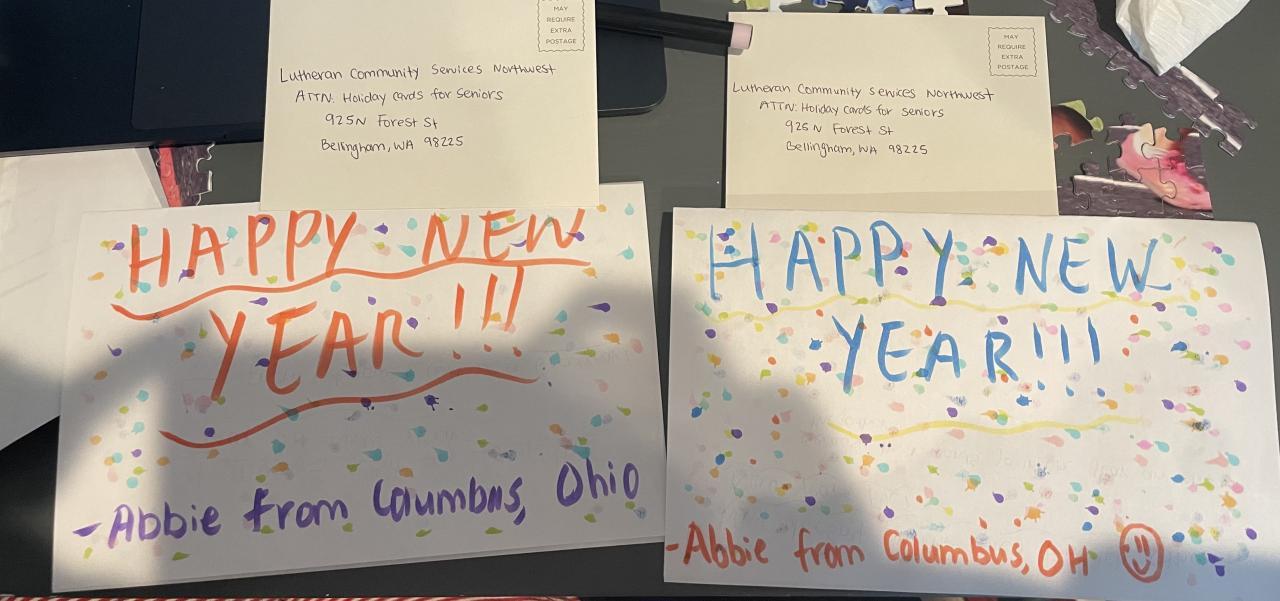 MAY
REQUIRE
EXTRA
POSTAGE
Lutheran Community Services Northwest
ATTN: Holiday cards for seniors
925 N Forest St
Bellingham, WA 98225
MAY
REQUIRE
EXTRA
POSTAGE
Lutheran Community Services Northwest
ATTN: Holiday cards for seniors
925 N Forest St
Bellingham, WA 98225
HAPPY NEW
YEAR!!!
-Abbie from Coumbus, Ohio
HAPPY NEW
YEAR!!!
-Abbie from Columbus, OH